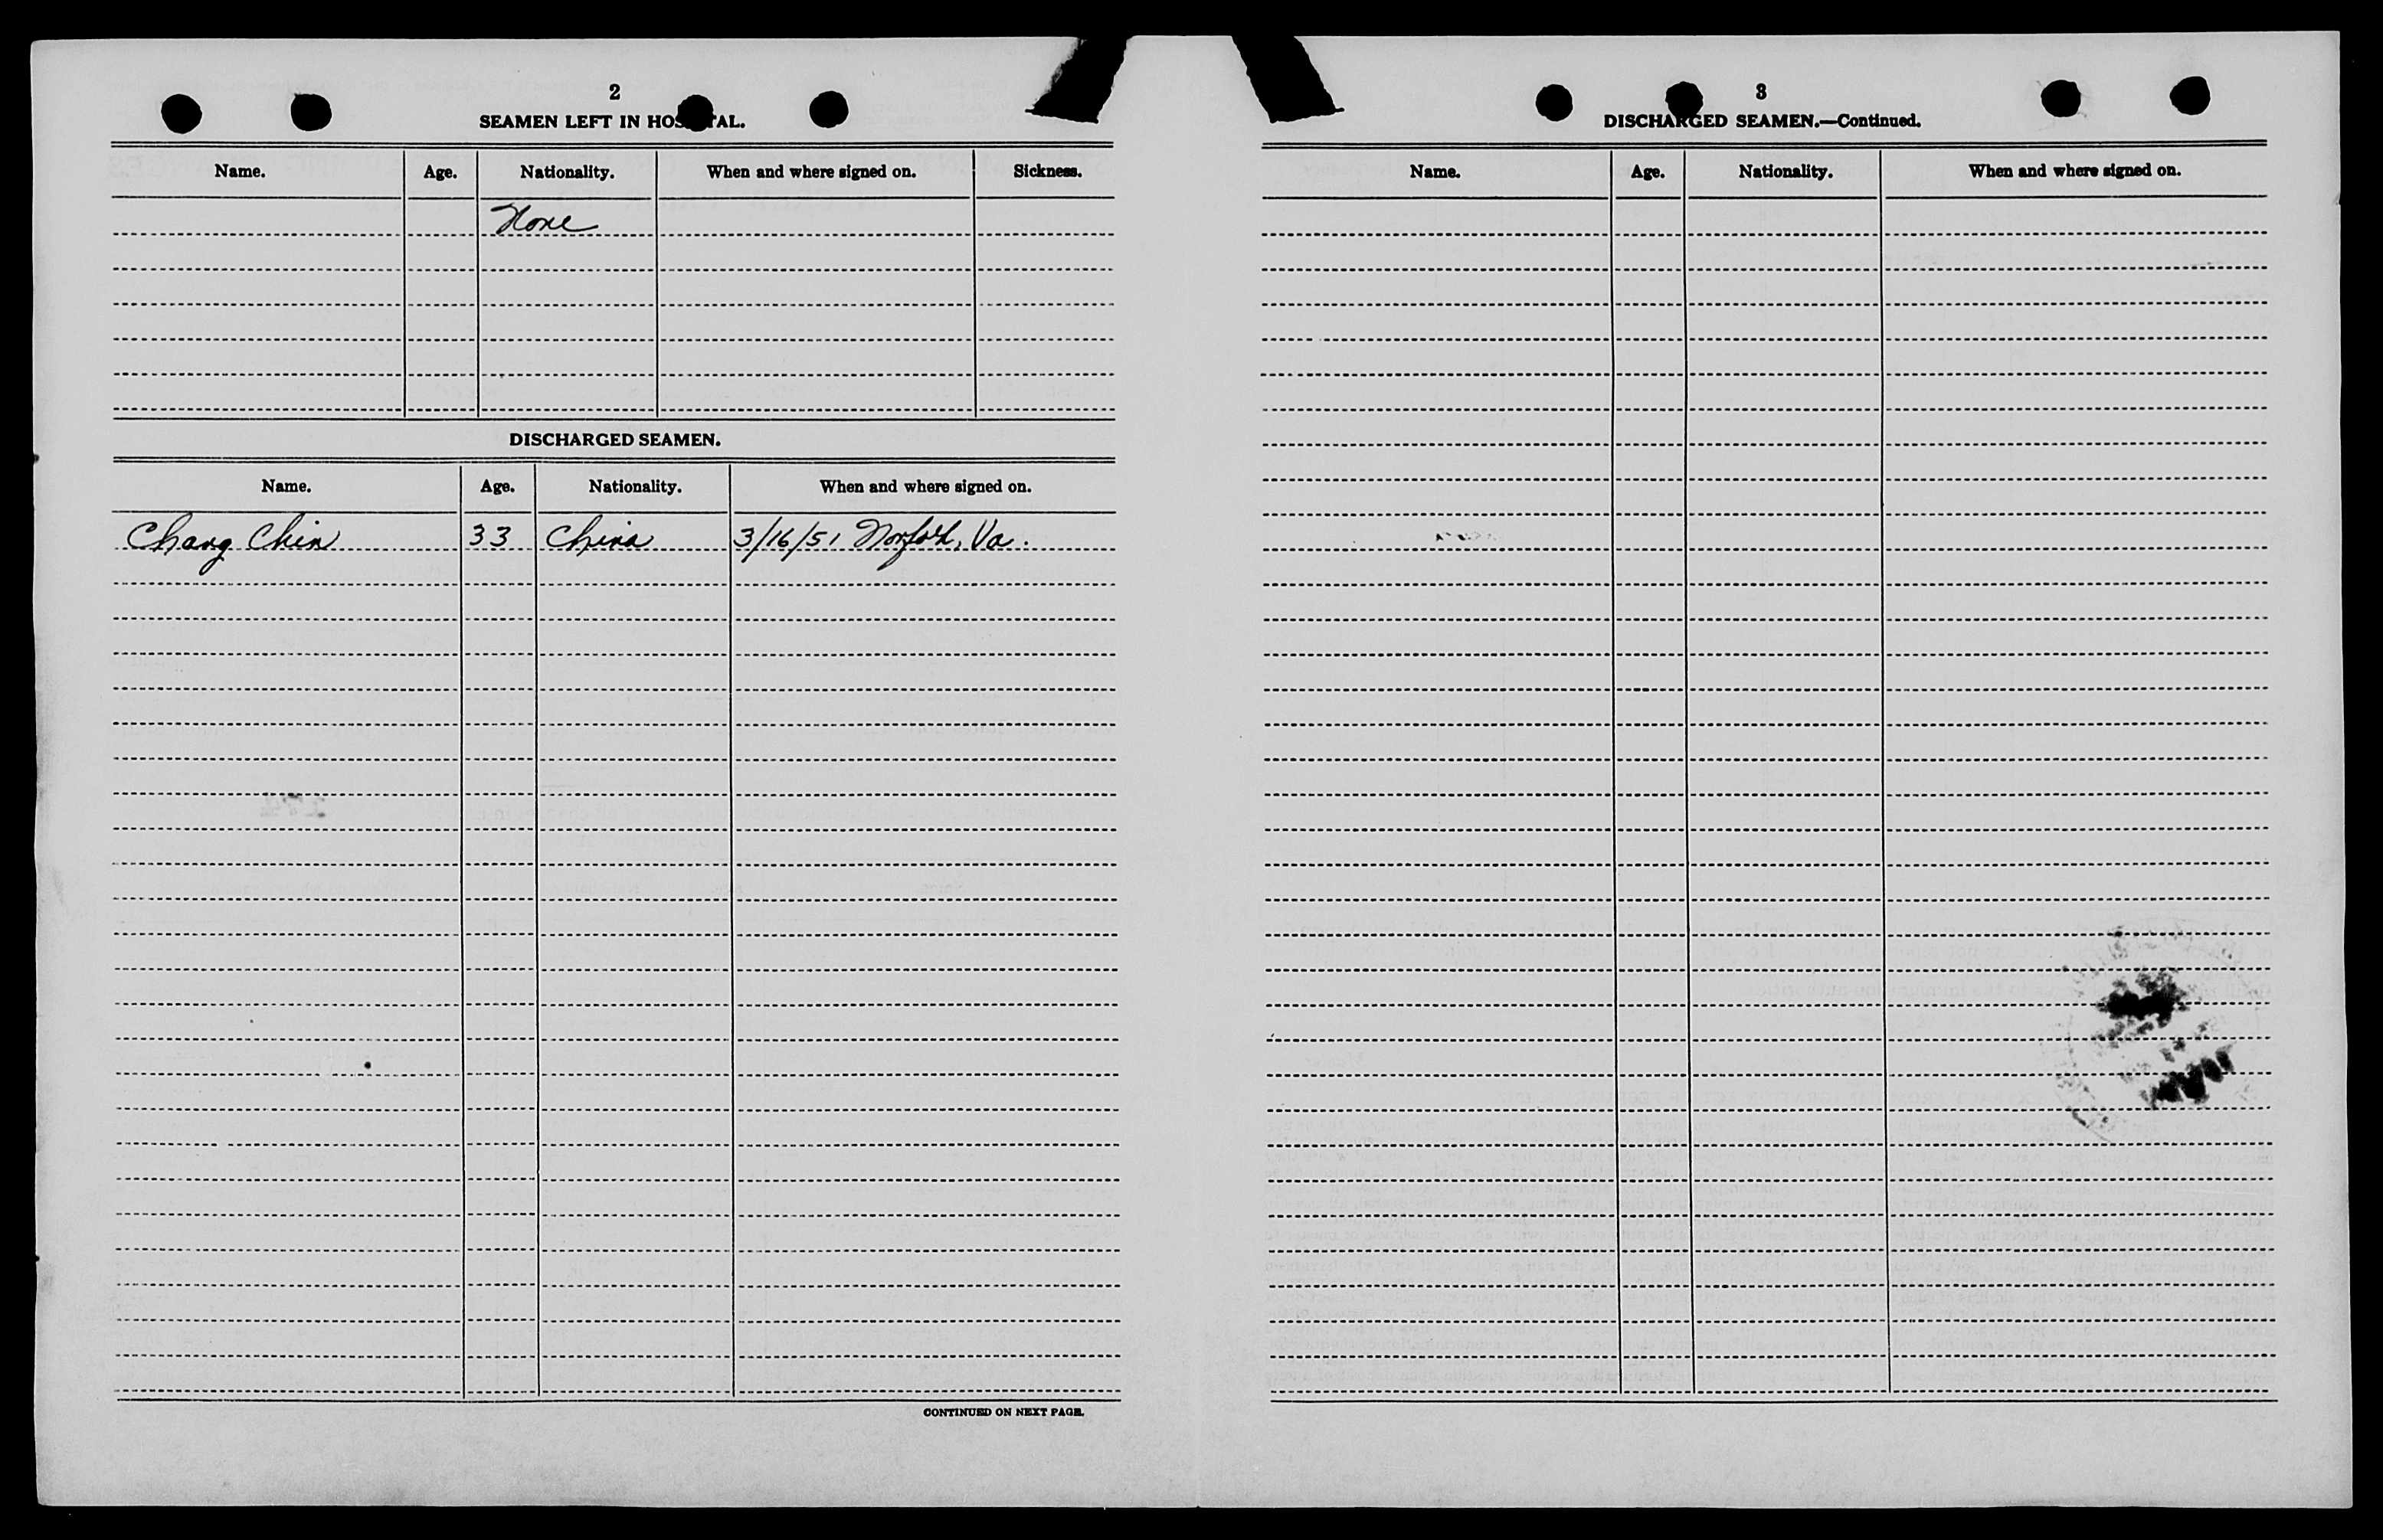 2
SEAMEN LEFT IN HOSPITAL.
Name. Age. Nationality. When and where signed on. Sickness.
None
DISCHARGED SEAMEN.
Name. Age. Nationality. When and where signed on.
Chang Chin 33 China 3/16/51 Norfolk, Va.
CONTINUED ON NEXT PAGE.
3
DISCHARGED SEAMEN.—Continued.
Name. Age. Nationality. When and where signed on.